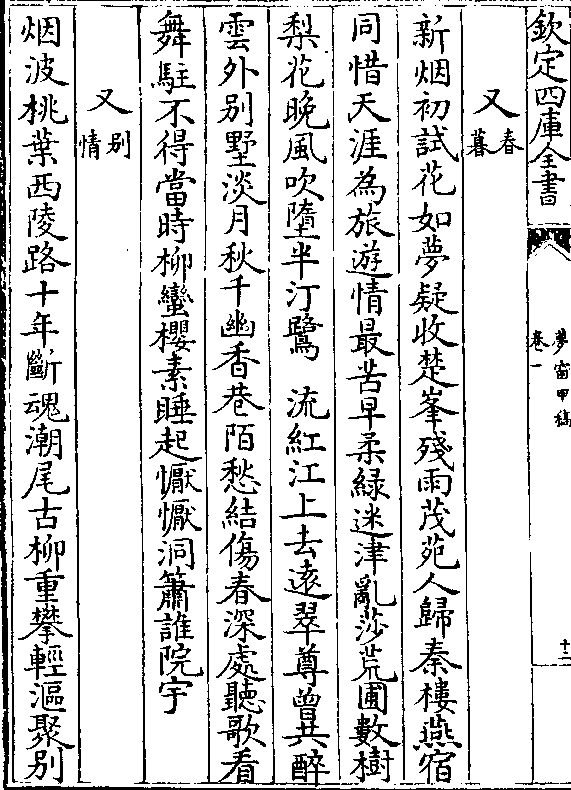 欽定四庫全書
夢窗甲稿
卷一
十二
又春暮
新烟初試花如夢疑收楚峯殘雨茂苑人歸秦樓燕宿
同惜天涯為旅遊情最苦早柔緑迷津亂莎荒圃數樹
梨花晚風吹墮半汀鷺 流紅江上去遠翠尊曾共醉
雲外别墅淡月秋千幽香巷陌愁結傷春深處聽歌看
舞駐不得當時柳蠻櫻素睡起懨懨洞簫誰院宇
又别情
烟波桃葉西陵路十年斷魂潮尾古柳重攀輕漚聚别